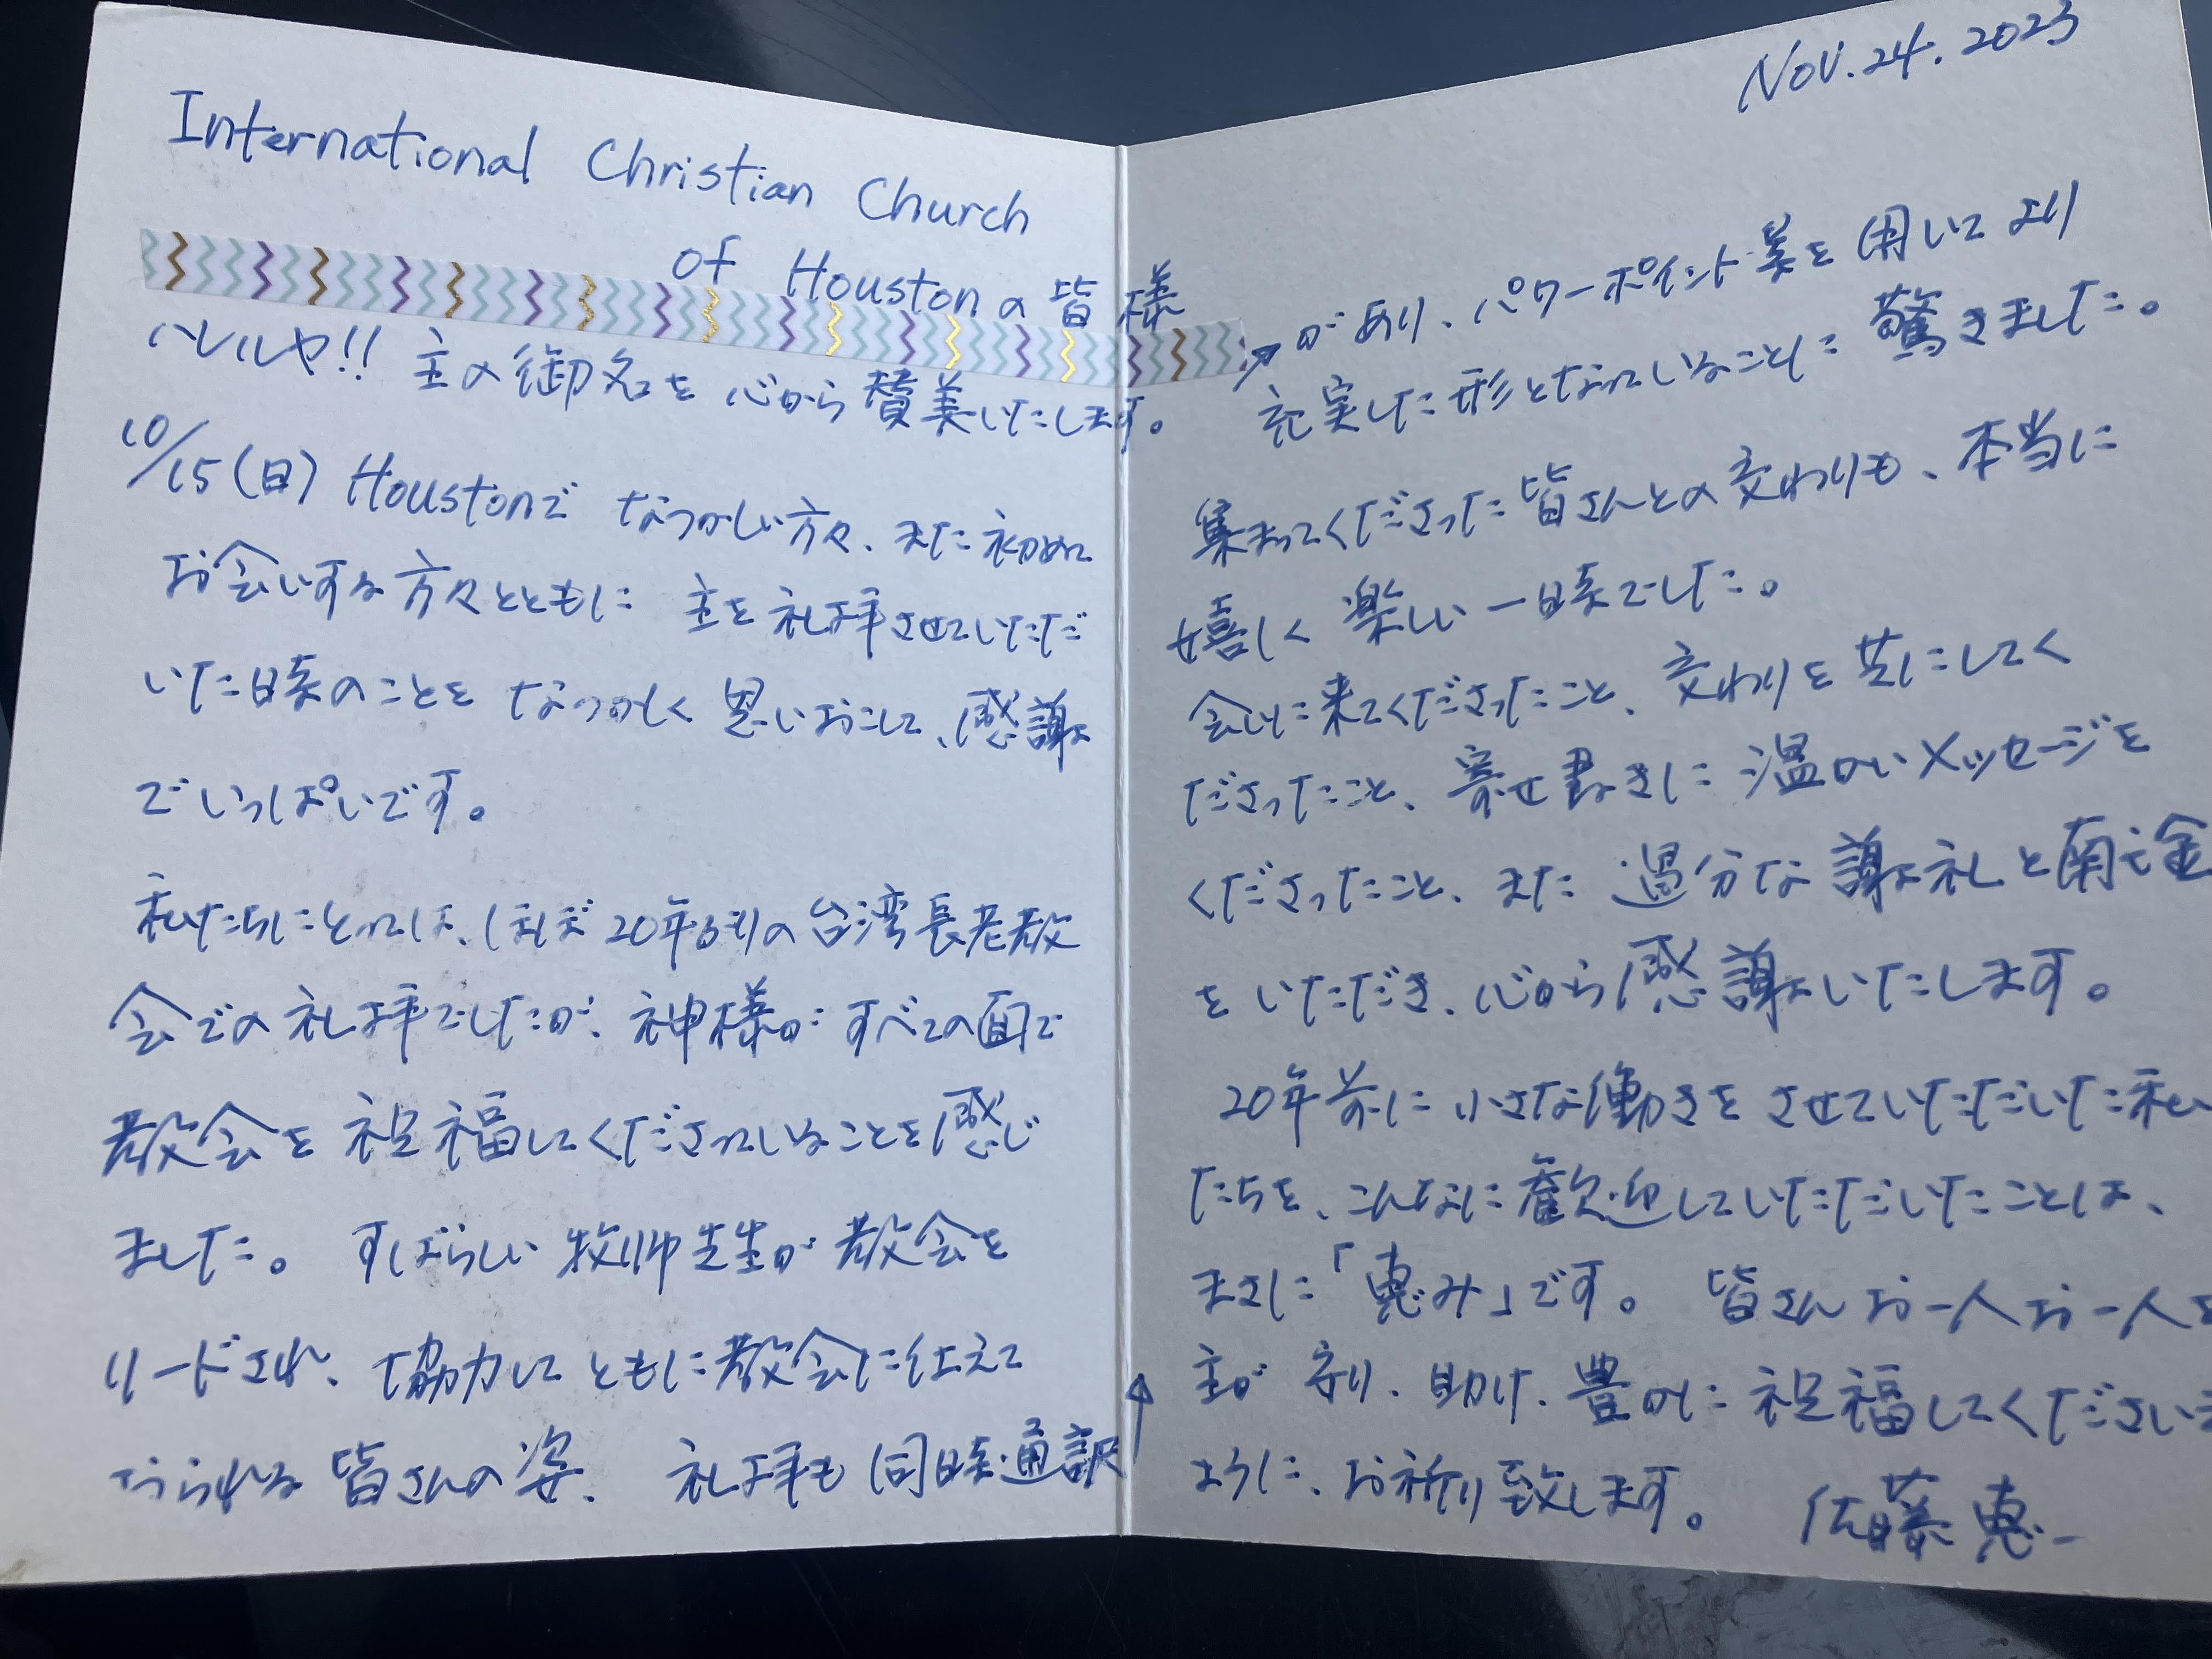 International Christian Church
of Houstonの皆様
ハレルヤ!! 主の御名を心から賛美いたします。
10/15(日) Houstonで なつかしい方々、また初めて
お会いする方々とともに 主を礼拝させていただ
いた時のことを なつかしく思いおこして、感謝
でいっぱいです。
私たちにとっては、ほぼ20年ぶりの台湾長老教
会での礼拝でしたが、神様が すべての面で
教会を祝福してくださっていることを感じ
ました。 すばらしい牧師先生が教会を
リードされ、協力して ともに教会に仕えて
おられる皆さんの姿、 礼拝も同時通訳
Nov. 24. 2023
があり、パワーポイント等を用いて より
充実した形となっていることに 驚きました。
集まってくださった皆さんとの交わりも、本当に
嬉しく 楽しい一時でした。
会いに来てくださったこと、交わりを共にしてく
ださったこと、寄せ書きに温かいメッセージを
くださったこと、また 過分な謝礼と献金
をいただき、心から感謝いたします。
20年前に小さな働きを させていただいた私
たちを、こんなに歓迎していただいたことは、
まさに「恵み」です。 皆さんお一人お一人を
主が 守り、助け、豊かに祝福してくださいます
ように、お祈り致します。 佐藤 恵一